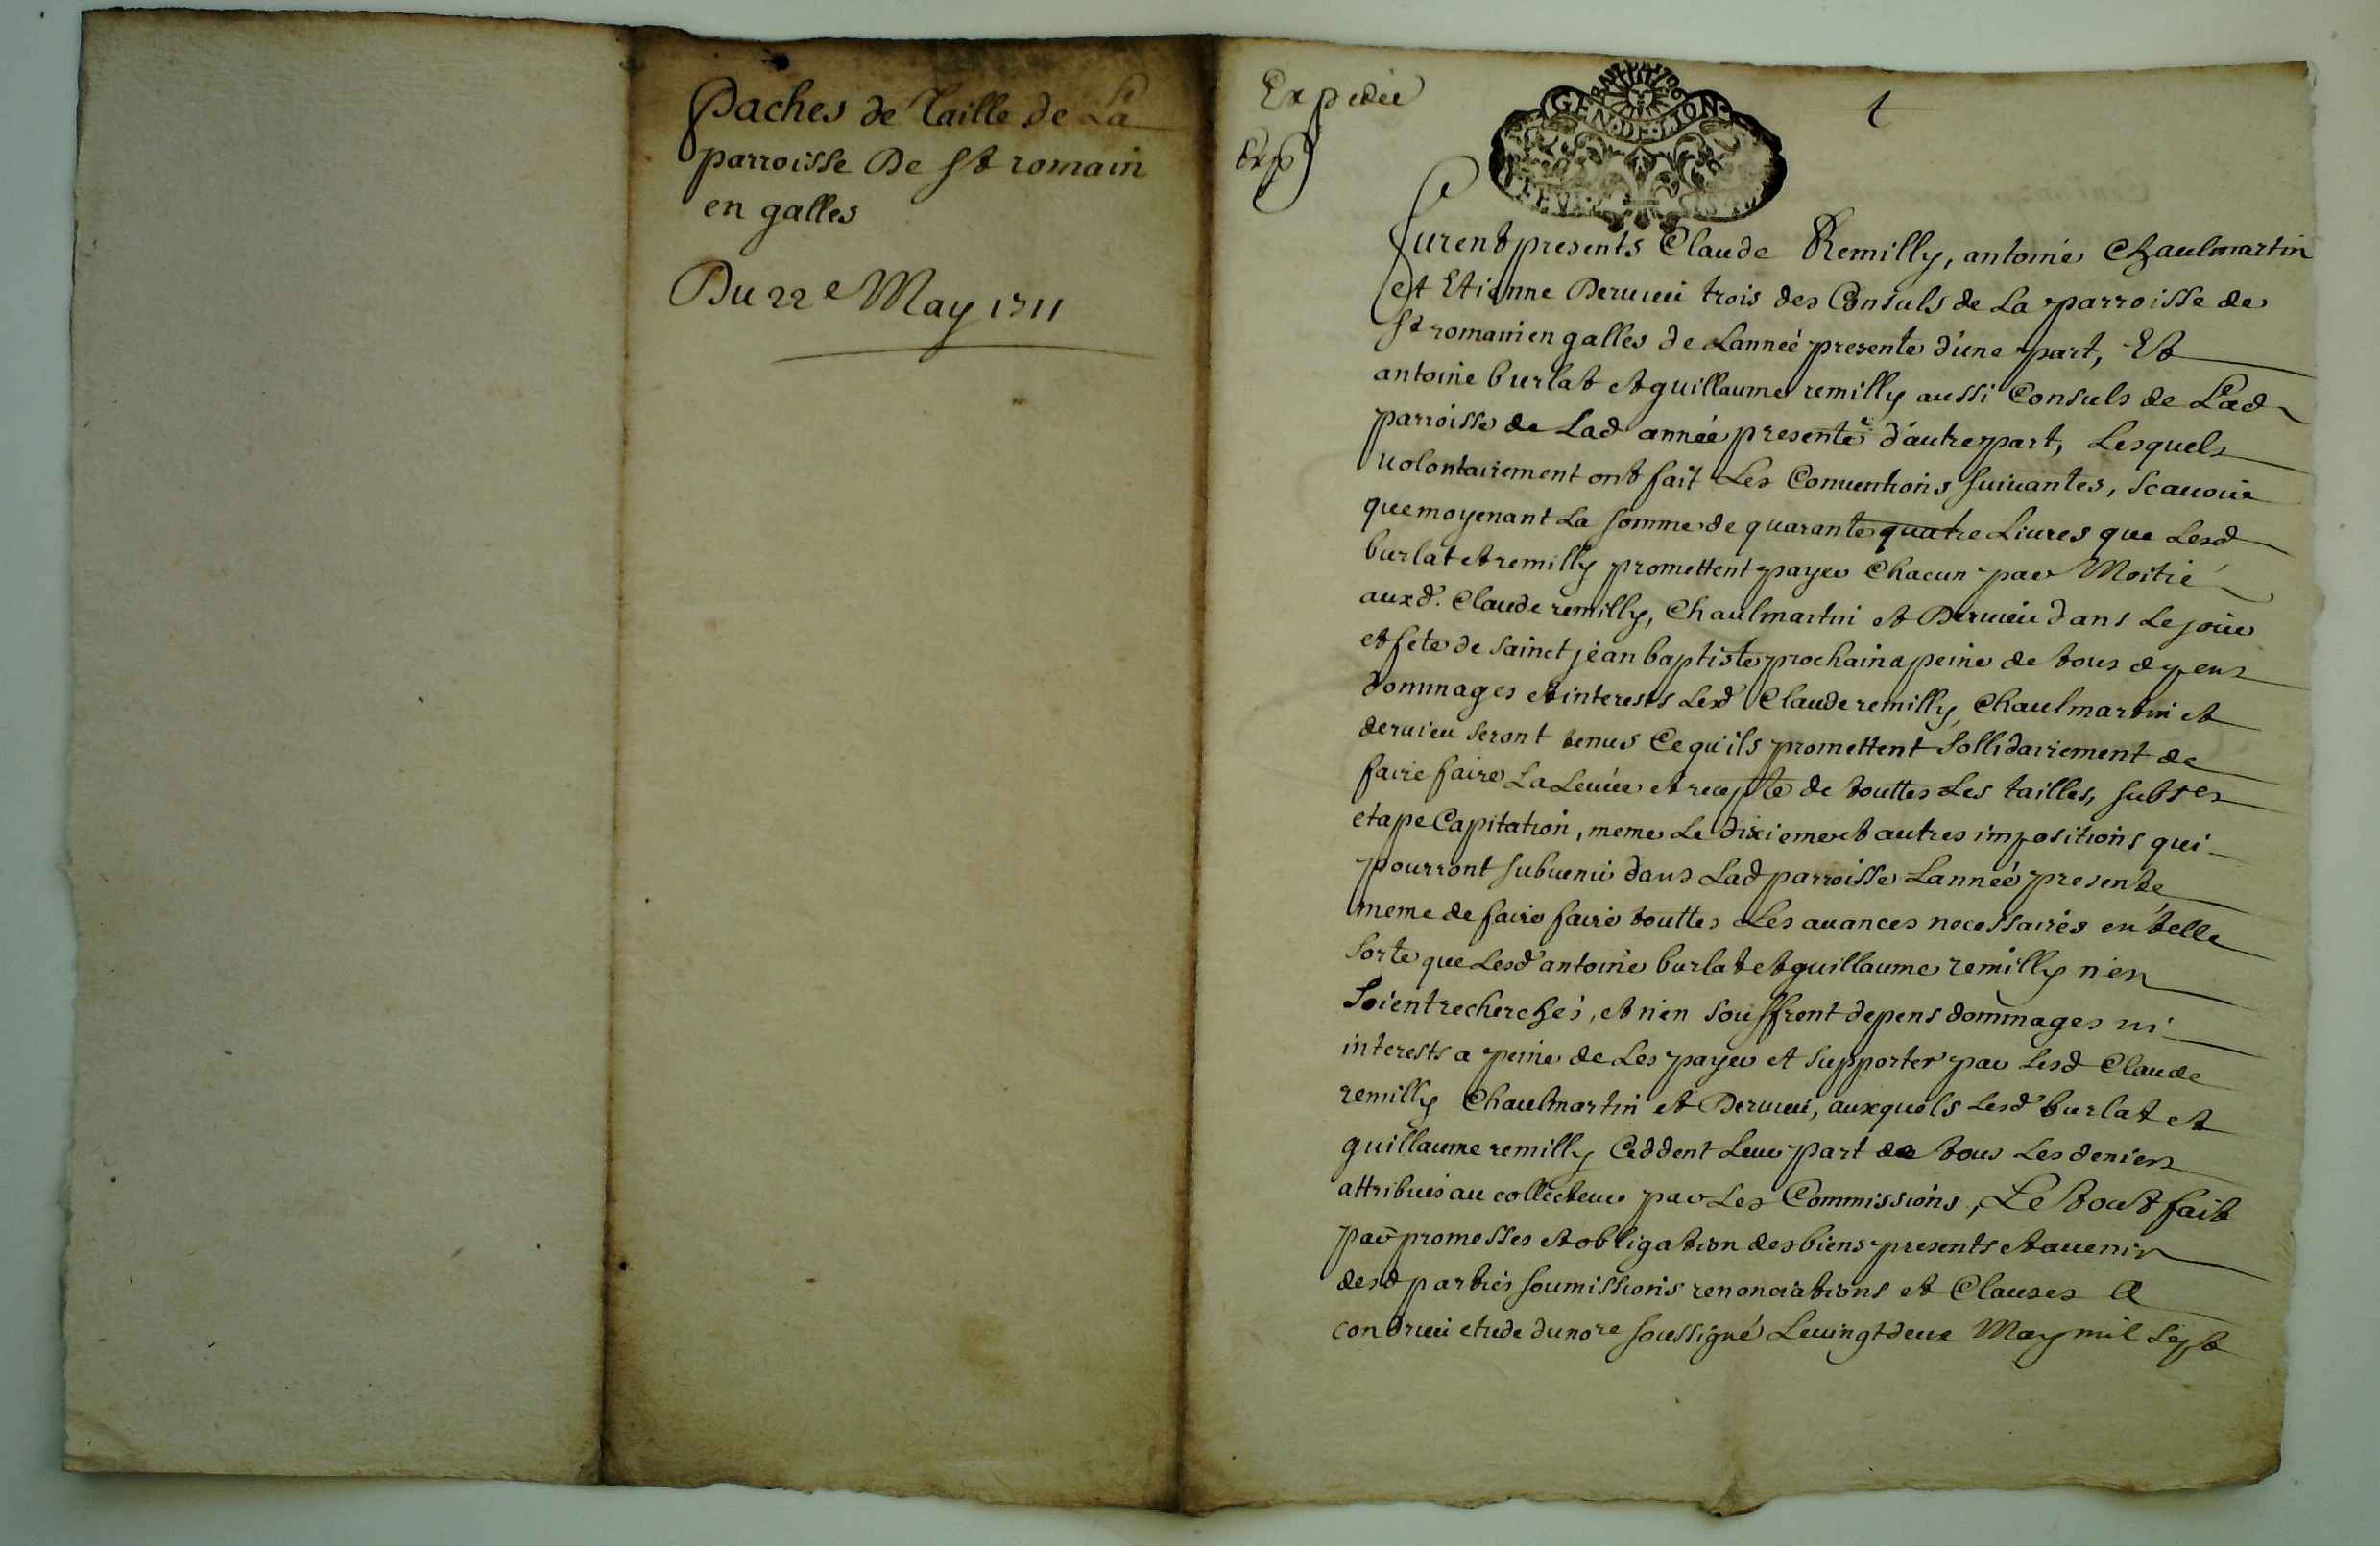 Paches de Taille de La
parroisse De St romain
en galles
Du 22e May 1711
Expediée
Exp
1
GEN D MON
furent presents Claude Remilly, antoine Chaulmartin
et Etienne Dervieu trois des Consuls de La parroisse de
St romain en galles de Lanneé presente d'une part, Et
antoine burlat et guillaume remilly aussi Consuls de Lad
parroisse de Lad année presente d'autre part, Lesquels
volontairement ont fait Les Conventions suivantes, scavoir
que moyenant La somme de quarante quatre Livres que Lesd
burlat et remilly promettent payer Chacun par Moitié
auxd. Claude remilly, Chaulmartin et Dervieu dans Le jour
et fete de sainct jean baptiste prochain a peine de tous depens
dommages et interests Lesd Claude remilly, Chaulmartin et
dervieu seront tenus Ce qu'ils promettent sollidairement de
faire faire La Levée et recepte de touttes Les tailles, subses
etape Capitation, meme Le dixieme et autres impositions qui
pourront subvenir dans Lad parroisse Lanneé presente
meme de faire faire touttes Les avances necessaires en telle
sorte que Lesd antoine burlat et guillaume remilly n'en
soient recherchés, et n'en souffrent depens dommages ni
interests a peine de Les payer et supporter par Lesd Claude
remilly Chaulmartin et Dervieu, auxquels Lesd burlat et
guillaume remilly Ceddent Leur part de tous Les deniers
attribués au collecteur par Les Commissions, Le tout fait
par promesses et obligation des biens presents et avenir
desd parties soumissions renonciations et Clauses a
condrieu etude du nore soussigné Le vingt deux May mil sept